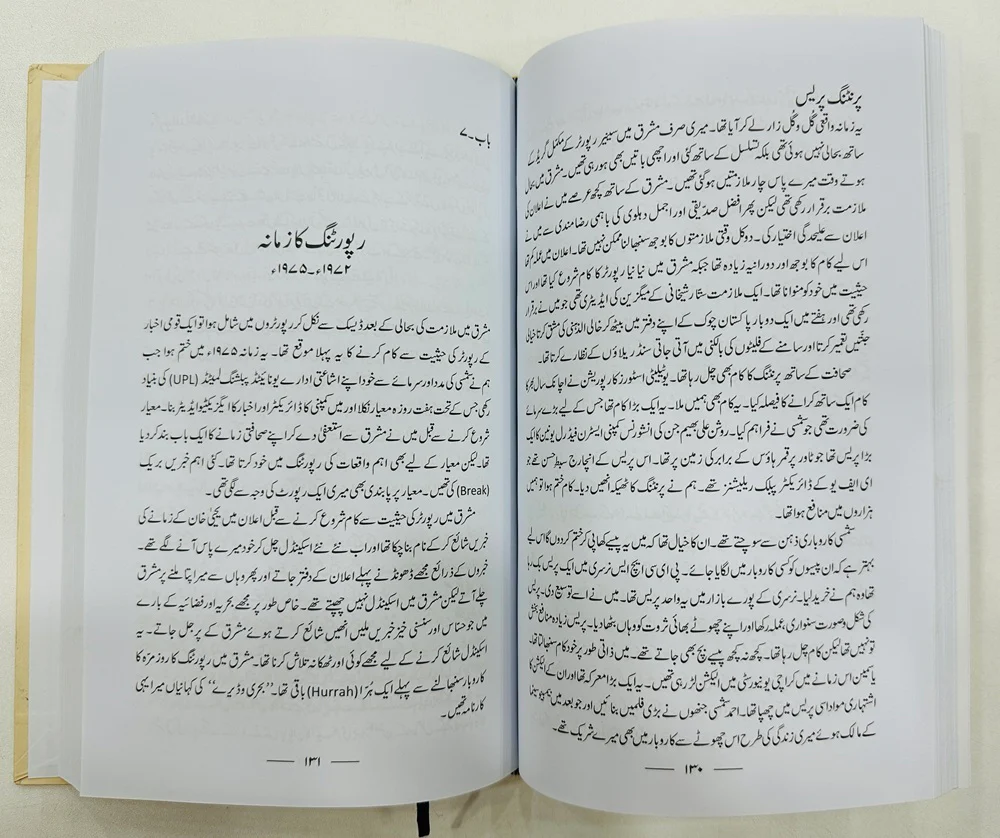 پرنٹنگ پریس
یہ زمانہ واقعی گُل و گُل زار لے کر آیا تھا۔ میری صرف مشرق میں سینیر رپورٹر کے مکمل گریڈ کے
ساتھ بحالی نہیں ہوئی تھی بلکہ تسلسل کے ساتھ کئی اور اچھی باتیں بھی ہو رہی تھیں۔ مشرق میں بحال
ہوتے وقت میرے پاس چار ملازمتیں ہو گئی تھیں۔ مشرق کے ساتھ کچھ عرصے میں نے اعلان کی
ملازمت برقرار رکھی تھی لیکن پھر افضل صدّیقی اور اجمل دہلوی کی باہمی رضامندی سے میں نے
اعلان سے علیحدگی اختیار کی۔ دو کل وقتی ملازمتوں کا بوجھ سنبھالنا ممکن نہیں تھا۔ اعلان میں عملہ کم تھا
اس لیے کام کا بوجھ اور دورانیہ زیادہ تھا جبکہ مشرق میں نیا نیا رپورٹر کا کام شروع کیا تھا اور اس
حیثیت میں خود کو منوانا تھا۔ ایک ملازمت ستار شیخانی کے میگزین کی ایڈیٹری تھی جو میں نے برقرار
رکھی تھی اور ہفتے میں ایک دو بار پاکستان چوک کے اپنے دفتر میں بیٹھ کر خالی الذہنی کی مشق کرتا خیالی
جنّتیں تعمیر کرتا اور سامنے کے فلیٹوں کی بالکنی میں آتی جاتی سنڈریلاؤں کے نظارے کرتا تھا۔
صحافت کے ساتھ پرنٹنگ کا کام بھی چل رہا تھا۔ یوٹیلیٹی اسٹورز کارپوریشن نے اچانک سال بھر کا
کام ایک ساتھ کرانے کا فیصلہ کیا۔ یہ کام بھی ہمیں ملا۔ یہ ایک بڑا کام تھا جس کے لیے بڑے سرمائے
کی ضرورت تھی جو شمسی نے فراہم کیا۔ روشن علی بھیم جی کی انشورنس کمپنی ایسٹرن فیڈرل یونین کا ایک
بڑا پریس تھا جو ٹاور پر قمر ہاؤس کے برابر کی زمین پر تھا۔ اس پریس کے انچارج سبط حسن تھے جو
ای ایف یو کے ڈائریکٹر پبلک ریلیشنز تھے۔ ہم نے پرنٹنگ کا ٹھیکہ انھیں دیا۔ کام ختم ہوا تو ہمیں
ہزاروں میں منافع ہوا تھا۔
شمسی کاروباری ذہن سے سوچتے تھے۔ ان کا خیال تھا کہ میں یہ پیسے کھا پی کر ختم کر دوں گا اس لیے
بہتر ہے کہ ان پیسوں کو کسی کاروبار میں لگایا جائے۔ پی ای سی ایچ ایس نرسری میں ایک پریس بک رہا
تھا وہ ہم نے خرید لیا۔ نرسری کے پورے بازار میں یہ واحد پریس تھا۔ میں نے اسے توسیع دی۔ پریس
کی شکل و صورت سنواری عملہ رکھا اور اپنے چھوٹے بھائی ثروت کو وہاں بٹھا دیا۔ پریس زیادہ منافع بخش
تو نہیں تھا لیکن کام چل رہا تھا۔ کچھ نہ کچھ پیسے بچ بھی جاتے تھے۔ میں ذاتی طور پر خود کام سنبھالتا تھا۔
یاسمین اس زمانے میں کراچی یونیورسٹی میں الیکشن لڑ رہی تھیں۔ یہ ایک بڑا معرکہ تھا اور ان کے الیکشن کا
اشتہاری مواد اسی پریس میں چھپا تھا۔ احمد شمسی جنھوں نے بڑی فلمیں بنائیں اور جو بعد میں بمبینو سینما
کے مالک ہوئے میری زندگی کی طرح اس چھوٹے سے کاروبار میں بھی میرے شریک تھے۔
۱۳۰
باب۔۷
رپورٹنگ کا زمانہ
۱۹۷۲ء۔۱۹۷۵ء
مشرق میں ملازمت کی بحالی کے بعد ڈیسک سے نکل کر رپورٹروں میں شامل ہوا تو ایک قومی اخبار
کے رپورٹر کی حیثیت سے کام کرنے کا یہ پہلا موقع تھا۔ یہ زمانہ ۱۹۷۵ء میں ختم ہوا جب
ہم نے شمسی کی مدد اور سرمائے سے خود اپنے اشاعتی ادارے یونائیٹڈ پبلشنگ لمیٹڈ (UPL) کی بنیاد
رکھی جس کے تحت ہفت روزہ معیار نکلا اور میں کمپنی کا ڈائریکٹر اور اخبار کا ایگزیکٹیو ایڈیٹر بنا۔ معیار
شروع کرنے سے قبل میں نے مشرق سے استعفیٰ دے کر اپنے صحافتی زمانے کا ایک باب بند کر دیا
تھا۔ لیکن معیار کے لیے بھی اہم واقعات کی رپورٹنگ میں خود کرتا تھا۔ کئی اہم خبریں بریک
(Break) کی تھیں۔ معیار پر پابندی بھی میری ایک رپورٹ کی وجہ سے لگی تھی۔
مشرق میں رپورٹر کی حیثیت سے کام شروع کرنے سے قبل اعلان میں یحییٰ خان کے زمانے کی
خبریں شائع کر کے نام بنا چکا تھا اور اب نئے نئے اسکینڈل چل کر خود میرے پاس آنے لگے تھے۔
خبروں کے ذرائع مجھے ڈھونڈنے پہلے اعلان کے دفتر جاتے اور پھر وہاں سے میرا پتا ملنے پر مشرق
چلے آتے لیکن مشرق میں اسکینڈل نہیں چھپتے تھے۔ خاص طور پر مجھے بحریہ اور فضائیہ کے بارے
میں جو حساس اور سنسنی خیز خبریں ملیں انھیں شائع کرتے ہوئے مشرق کے پر جل جاتے۔ یہ
اسکینڈل شائع کرنے کے لیے مجھے کوئی اور ٹھکانہ تلاش کرنا تھا۔ مشرق میں رپورٹنگ کا روز مرہ کا
کاروبار سنبھالنے سے پہلے ایک ہُرّا (Hurrah) باقی تھا۔ ’’بحری وڈیرے‘‘ کی کہانیاں میرا یہی
کارنامہ تھیں۔
۱۳۱